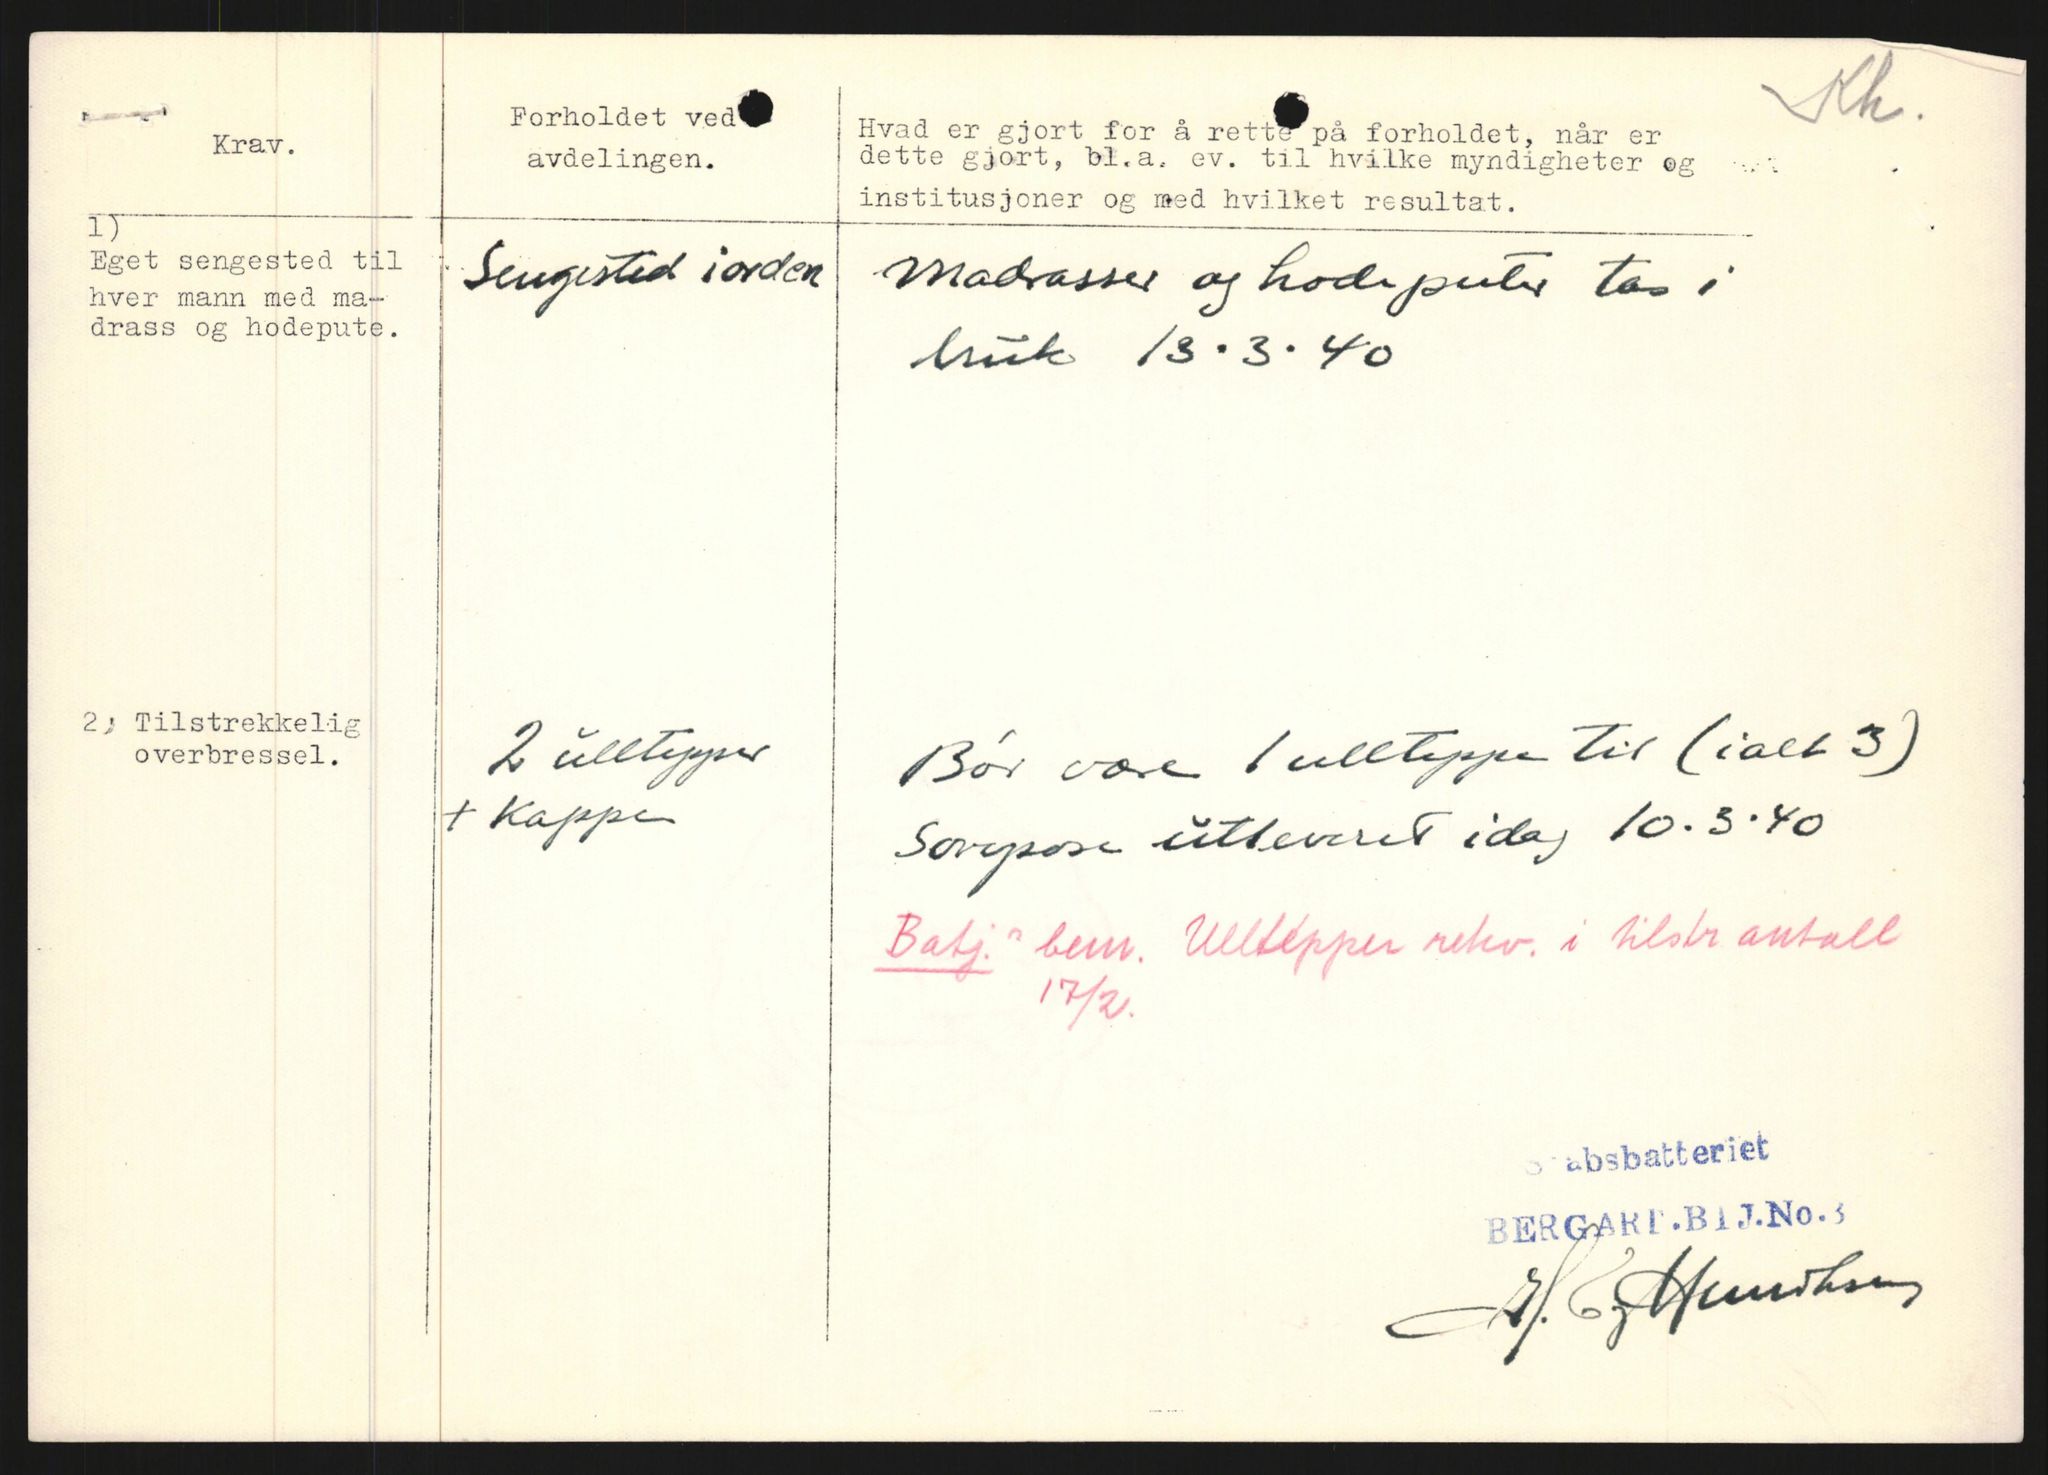 Kh.
Krav.
Forholdet ved
avdelingen.
Hvad er gjort for å rette på forholdet, når er
dette gjort, bl.a. ev. til hvilke myndigheter og
institusjoner og med hvilket resultat.
1)
Eget sengested til
hver mann med ma-
drass og hodepute.
Sengested i orden
Madrasser og hodeputer tas i
bruk 13.3.40
2) Tilstrekkelig
overbressel.
2 ulltepper
+ Kappe
Bör være 1 ullteppe til (ialt 3)
Sovepose utleveret idag 10.3.40
Batj. bem. Ulltepper rekv. i tilstr antall
17/2.
Stabsbatteriet
BERGART.BTJ.No.3
Henriksen